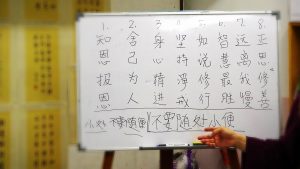 1. 知恩报恩
2. 舍己为人
3. 身心精进
4. 坚持净戒
5. 如说修行
6. 智慧最胜
7. 远离我慢
8. 思修
小处 不要随便 不要随处小便